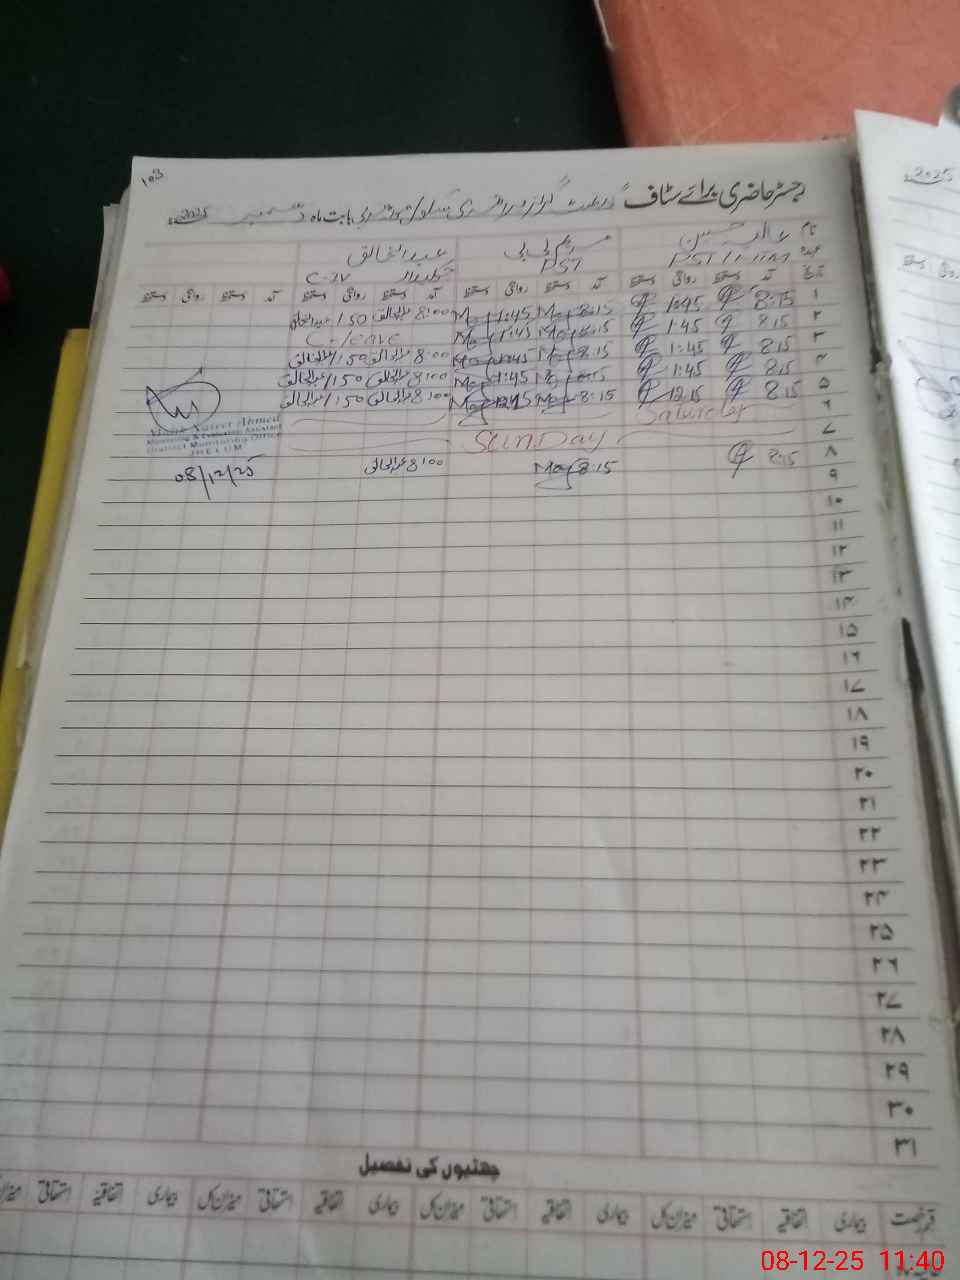 103
رجسٹر حاضری برائے سٹاف گورنمنٹ گرلز پرائمری بابت ماہ دسمبر 2025ء
نام عالیہ حسین مریم بی بی عبدالخالق
عہدہ PST PST چوکیدار C-IV
تاریخ آمد دستخط روانگی دستخط آمد دستخط روانگی دستخط آمد دستخط روانگی دستخط آمد دستخط روانگی دستخط
۱ 8:15 1:45 8:15 1:45 8:00 عبدالخالق 1:50 عبدالخالق
۲ 8:15 1:45 8:15 1:45 C-leave
۳ 8:15 1:45 8:15 1:45 8:00 عبدالخالق 1:50 عبدالخالق
۴ 8:15 1:45 8:15 1:45 8:00 عبدالخالق 1:50 عبدالخالق
۵ 8:15 12:15 8:15 12:15 8:00 عبدالخالق 1:50 عبدالخالق
۶ Saturday
۷ SUNDAY
۸ 8:15 8:15 8:00 عبدالخالق
Ahmed
Monitoring & Evaluation Assistant
District Monitoring Office
JHELUM
08/12/25
۹
۱۰
۱۱
۱۲
۱۳
۱۴
۱۵
۱۶
۱۷
۱۸
۱۹
۲۰
۲۱
۲۲
۲۳
۲۴
۲۵
۲۶
۲۷
۲۸
۲۹
۳۰
۳۱
چھٹیوں کی تفصیل
قسم رخصت بیماری اتفاقیہ استحقاقی میزان کل بیماری اتفاقیہ استحقاقی میزان کل بیماری اتفاقیہ استحقاقی میزان کل بیماری اتفاقیہ استحقاقی میزان
2025ء
08-12-25 11:40